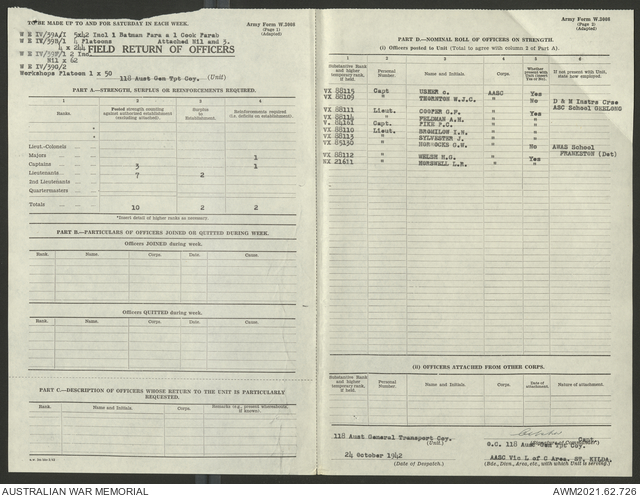 TO BE MADE UP TO AND FOR SATURDAY IN EACH WEEK.
Army Form W.3008
(Page 1)
(Adapted)
W E IV/39A/I 5x42 Incl 1 Batman Para a 1 Cook Parab
W E IV/39B/1 4 Platoons Attached Nil and 5.
4 x 244
FIELD RETURN OF OFFICERS
Nil x 62
W E IV/390/2
Workshops Platoon 1 x 50
118 Aust Gen Tpt Coy. (Unit)
PART A.—STRENGTH, SURPLUS OR REINFORCEMENTS REQUIRED.
1 2 3 4
Posted strength counting against authorised establishment (excluding attached).
Surplus to Establishment.
Reinforcements required (i.e. deficits on establishment).
Lieut.-Colonels
Majors 1
Captains 3 1
Lieutenants 7 2
2nd Lieutenants
Quartermasters
Totals 10 2 2
*Insert detail of higher ranks as necessary.
PART B.—PARTICULARS OF OFFICERS JOINED OR QUITTED DURING WEEK.
Officers JOINED during week.
Rank. Name. Corps. Date. Cause.
Officers QUITTED during week.
Rank. Name. Corps. Date. Cause.
PART C.—DESCRIPTION OF OFFICERS WHOSE RETURN TO THE UNIT IS PARTICULARLY REQUESTED.
Rank. Name and Initials. Corps. Remarks (e.g., present whereabouts, if known).
Army Form W.3008
(Page 2)
(Adapted)
PART D.—NOMINAL ROLL OF OFFICERS ON STRENGTH.
(i) Officers posted to Unit (Total to agree with column 2 of Part A).
1 2 3 4 5 6
Substantive Rank and higher temporary rank, if held.
Personal Number.
Name and Initials.
Corps.
Whether present with Unit (insert Yes or No).
If not present with Unit, state how employed.
VX 88115 Capt AASC Yes
VX 88109 " THORNTON W.J.C. " No D & M Instrs Crse
ASC School GEELONG
VX 88111 Lieut. COOPER G.F. " Yes
VX 88114 " FELDMAN A.H. "
V. 84161 Capt. PIKE F.C. "
VX 88110 Lieut.
VX 88113 " SYLVESTER J. "
VX 85130 " HORROCKS G.W. " No AWAS School
FRANKSTON (Det)
VX 88112 " WELSH H.G. " Yes
VX 21611 " HORSWELL L.R. "
(ii) OFFICERS ATTACHED FROM OTHER CORPS.
Substantive Rank and higher temporary rank, if held.
Personal Number.
Name and Initials.
Corps.
Date of attachment.
Nature of attachment.
118 Aust General Transport Coy.
(Unit.)
Capt
(Signature of Commander.)
O.C. 118 Aust Gen Tpt Coy.
24 October 1942
(Date of Despatch.)
AASC Vic L of C Area. ST. KILDA.
(Bde., Divn., Area, etc., with which Unit is serving.)
AUSTRALIAN WAR MEMORIAL
AWM2021.62.726